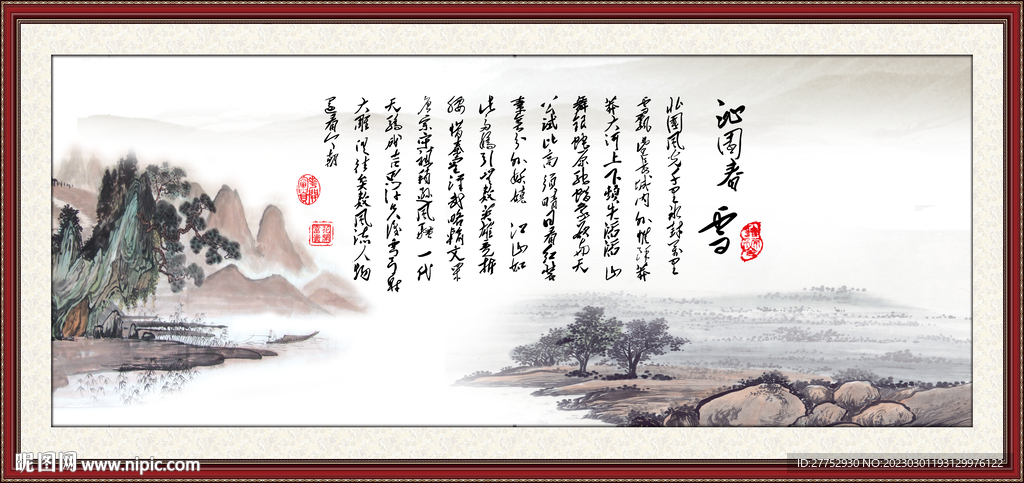 沁园春 雪
北国风光千里冰封万里
雪飘望长城内外惟余莽
莽大河上下顿失滔滔 山
舞银蛇原驰蜡象欲与天
公试比高须晴日看红装
素裹分外妖娆 江山如
此多娇引无数英雄竞折
腰惜秦皇汉武略输文采
唐宗宋祖稍逊风骚 一代
天骄成吉思汗只识弯弓射
大雕俱往矣数风流人物
还看今朝
昵图网 www.nipic.com
ID:27752930 NO:20230301193129976122